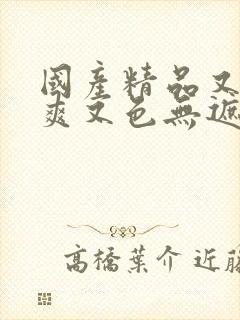 國產精品又
爽又色無遮
高橋葉介 近藤